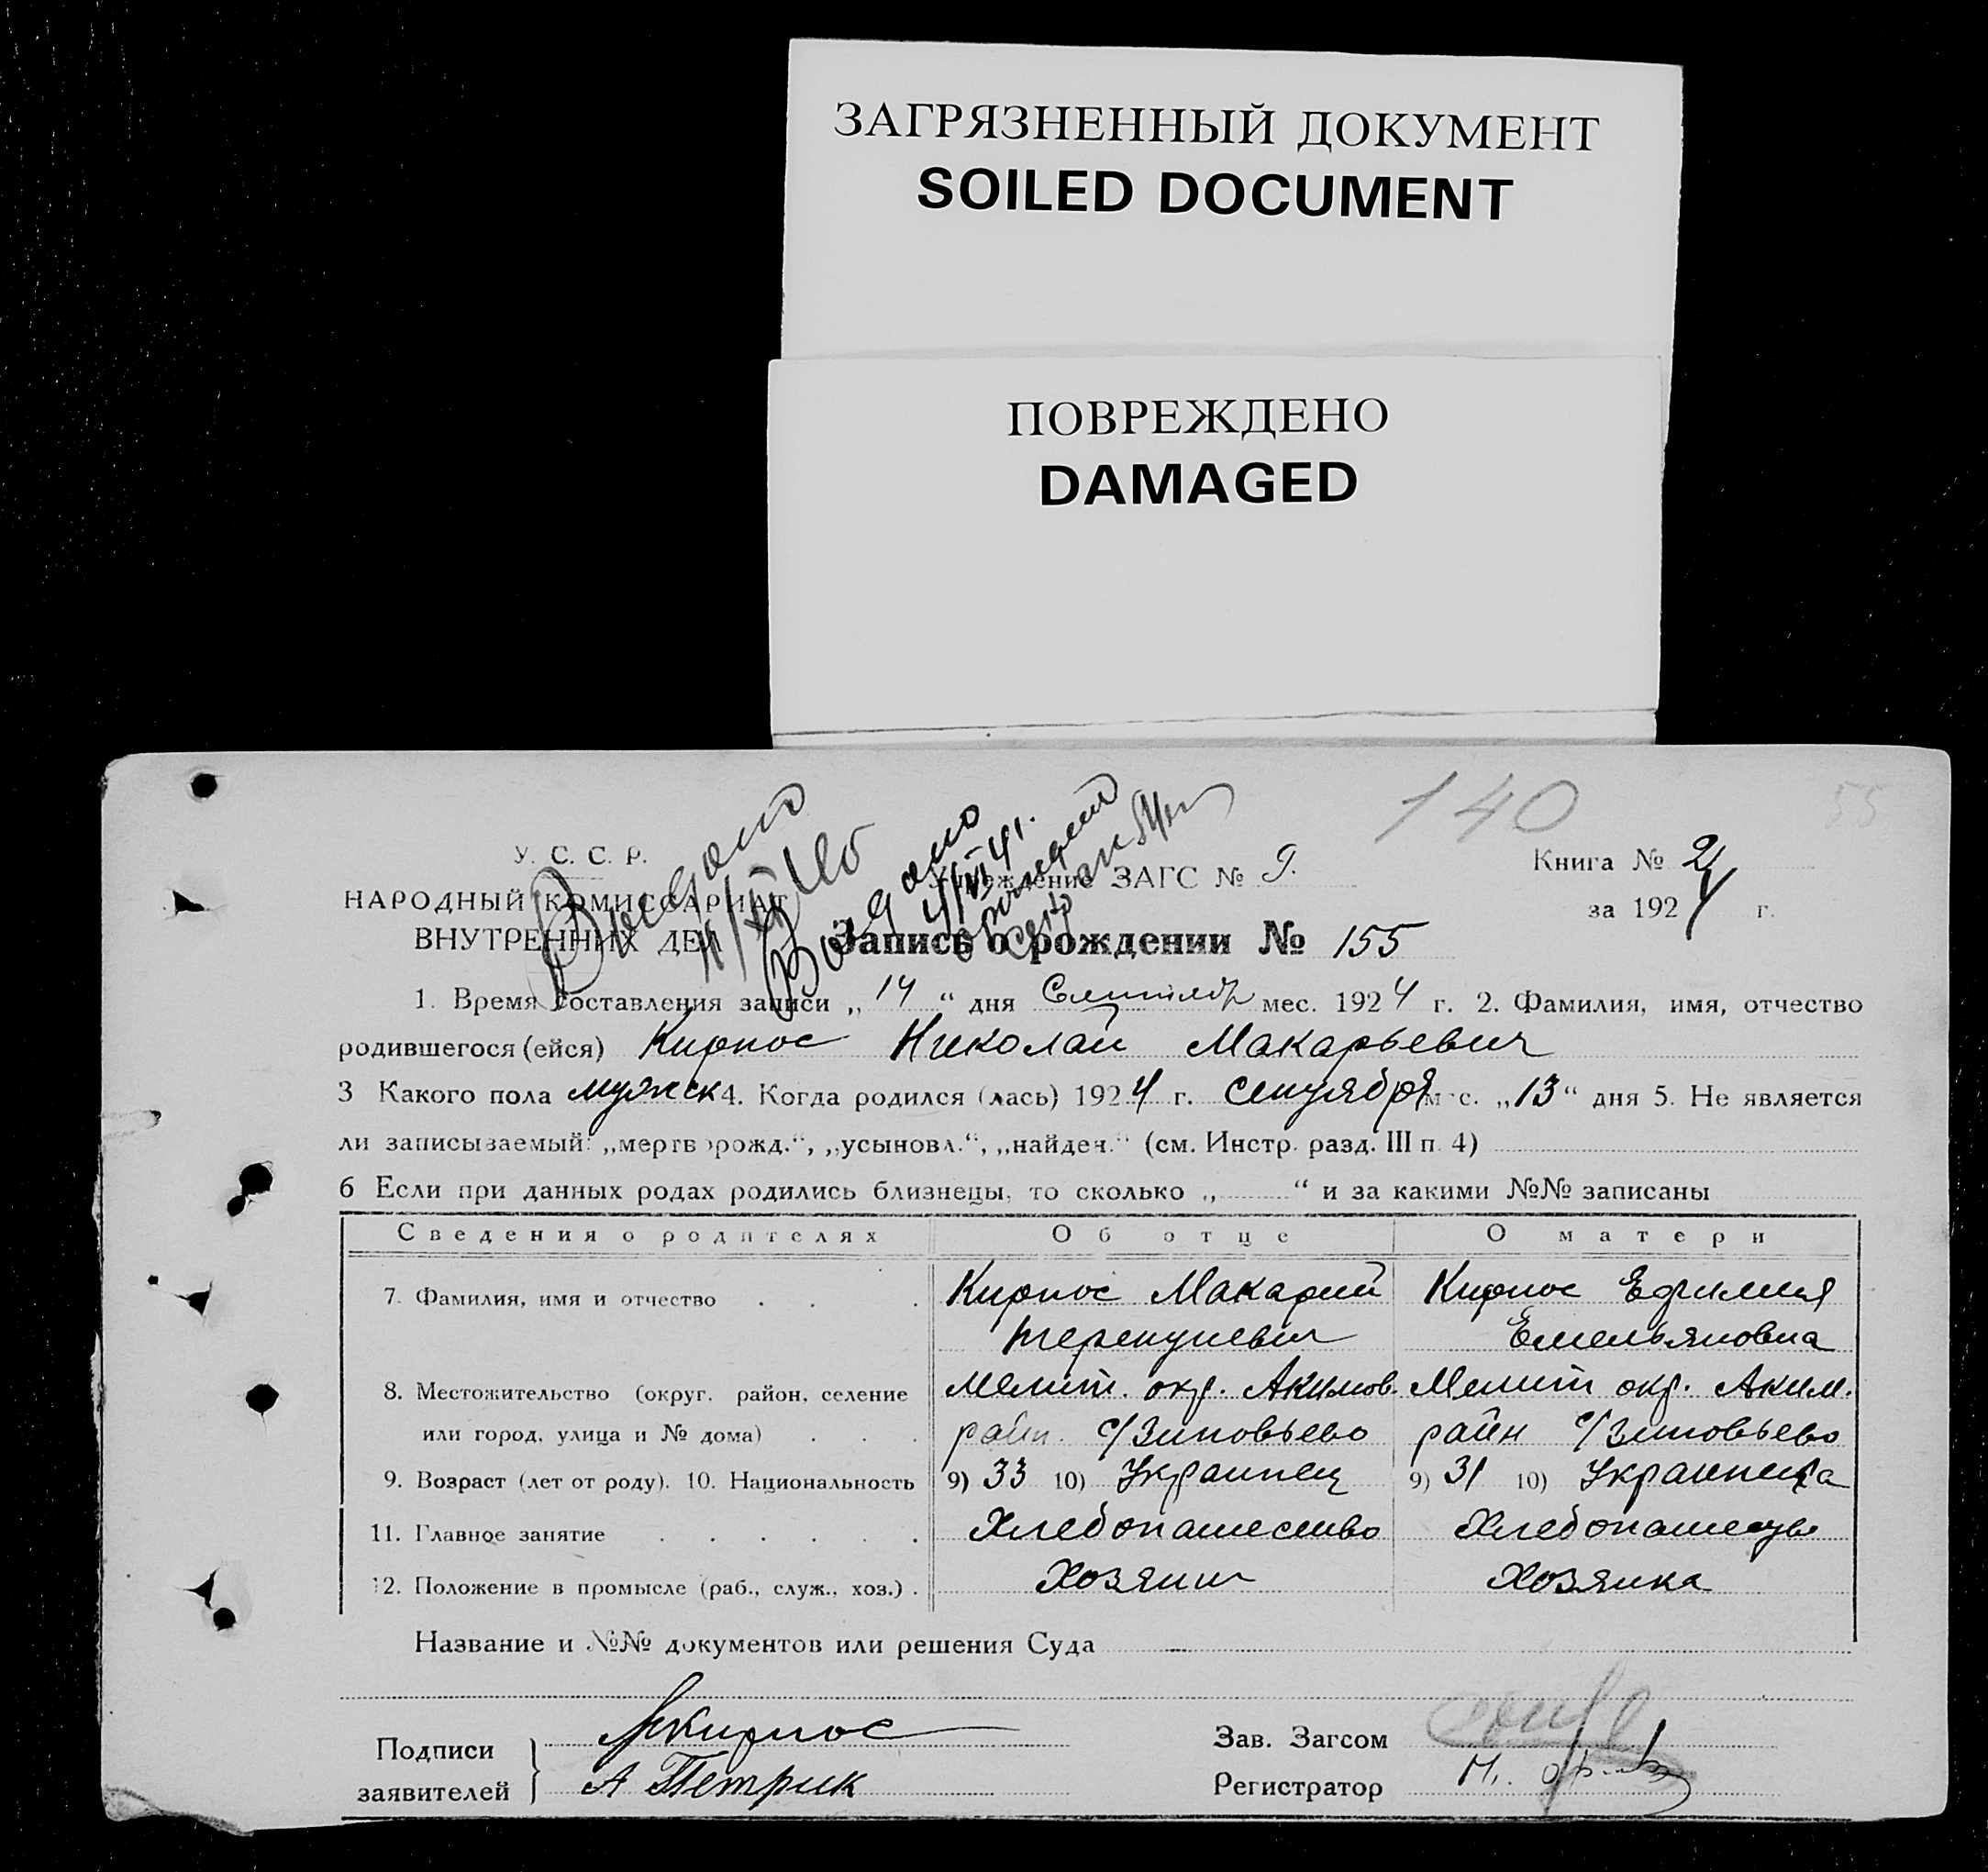 ЗАГРЯЗНЕННЫЙ ДОКУМЕНТ
SOILED DOCUMENT
ПОВРЕЖДЕНО
DAMAGED
140
55
У. С. С. Р.
НАРОДНЫЙ КОМИССАРИАТ
ВНУТРЕННИХ ДЕЛ
Выдано
Выдано
Учреждение ЗАГС №
Книга № 2
за 1924 г.
Запись о рождении № 155
1. Время составления записи „14“ дня Сентябр мес. 1924 г. 2. Фамилия, имя, отчество
родившегося (ейся) Кирпос Николай Макарьевич
3 Какого пола мужск 4. Когда родился (лась) 1924 г. Сентября мес. „13“ дня 5. Не является
ли записываемый: „мертворожд.“, „усыновл.“, „найден.“ (см. Инстр. разд. III п. 4)
6 Если при данных родах родились близнецы, то сколько „ “ и за какими №№ записаны
Сведения о родителях Об отце О матери
7. Фамилия, имя и отчество Кирпос Макарий Кирпос Ефимия
Терентиевич Емельяновна
8. Местожительство (округ, район, селение Мелит. окр. Акимов. Мелит окр. Аким.
или город, улица и № дома) райн. с/Зиновьево райн с/Зиновьево
9. Возраст (лет от роду). 10. Национальность 9) 33 10) Украинец 9) 31 10) Украинка
11. Главное занятие Хлебопашество Хлебопашество
12. Положение в промысле (раб., служ., хоз.) Хозяин Хозяйка
Название и №№ документов или решения Суда
Подписи заявителей
МКирпос
А Петрик
Зав. Загсом
Регистратор